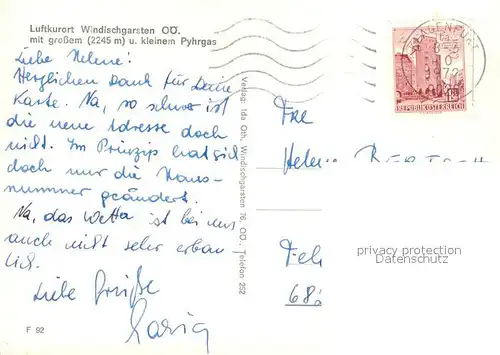 Luftkurort Windischgarsten OÖ.
mit großem (2245 m) u. kleinem Pyhrgas
Liebe Helene!
Herzlichen Dank für Deine
Karte. Na, so schwer ist
die neue Adresse doch
nicht. Im Prinzip hat sich
doch nur die Haus-
nummer geändert.
Na, das Wetter ist bei uns
auch nicht sehr erbau-
lich.
Liebe Grüße
F 92
Verlag: Ida Oth, Windischgarsten 76, OÖ., Telefon 252
KLAGENFURT
REPUBLIK ÖSTERREICH
Helene
privacy protection
Datenschutz